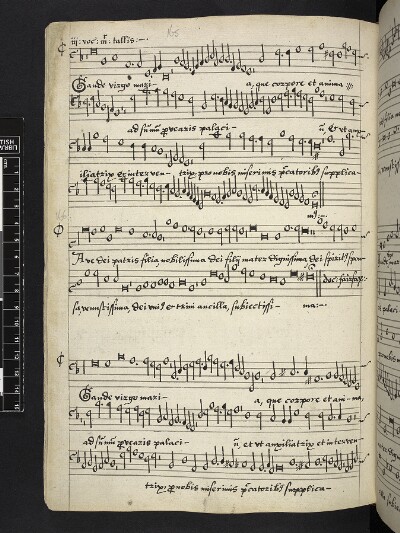 iij: voc: mr tallis:—
Gaude virgo maxi- a, que corpore et anima
ad sumu puearis palaci- u, Et ut
iliatrip et interven- trip, pro nobis miserimis pcatorib9 supplica-
Ave dei patris filia nobilissima dei filij mater dignissima dei spirit9 spon
sa venustissima, dei uni9 et trini ancilla, subiectissi- ma:-
doc: fairfax:
Gaude virgo maxi- a, que corpore et ani- ma,
ad sumu puearis palaci- u, et ut auxiliatrip et interven-
trip, pro nobis miserimis pcatorib9 supplica-